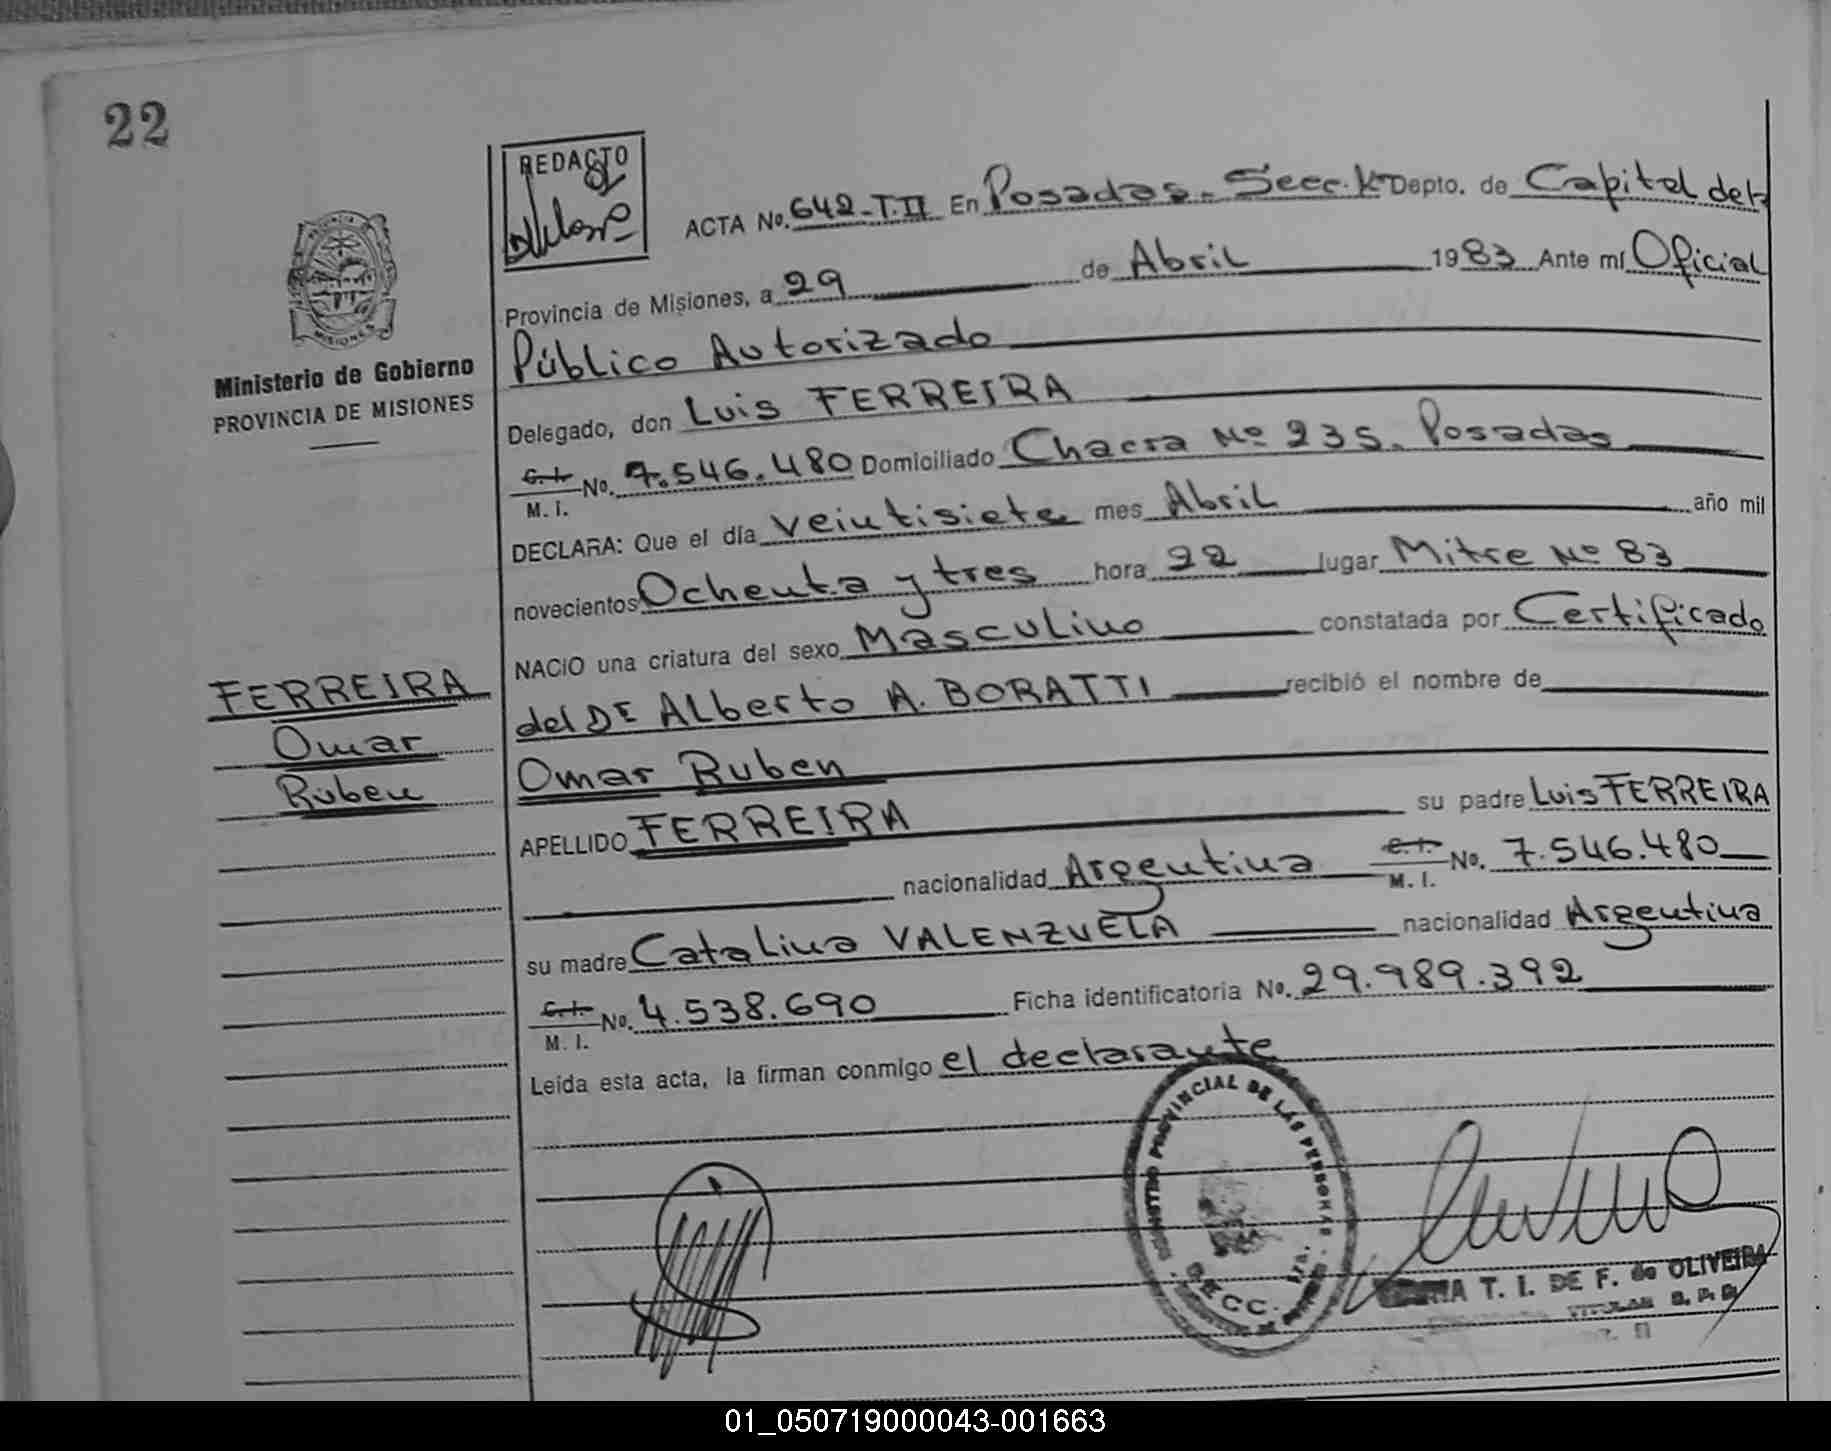 22
REDACTO
ACTA No. 642-T.II En Posadas. Secc. 1ª Depto. de Capital del
Provincia de Misiones, a 29 de Abril 1983 Ante mí Oficial
Público Autorizado
Delegado, don Luis FERREIRA
C.I. No. 7.546.480 Domiciliado Chacra Nº 235. Posadas
M. I.
DECLARA: Que el día veintisiete mes Abril año mil
novecientos Ochenta y tres hora 22 lugar Mitre Nº 83
NACIO una criatura del sexo Masculino constatada por Certificado
del Dr Alberto A. BORATTI recibió el nombre de
Omar Ruben
APELLIDO FERREIRA su padre Luis FERREIRA
nacionalidad Argentina C.I. No. 7.546.480
M. I.
su madre Catalina VALENZUELA nacionalidad Argentina
C.I. No. 4.538.690 Ficha identificatoria No. 29.989.392
M. I.
Leída esta acta, la firman conmigo el declarante
MISIONES
Ministerio de Gobierno
PROVINCIA DE MISIONES
FERREIRA
Omar
Ruben
REGISTRO PROVINCIAL DE LAS PERSONAS
SECC.
T. I. DE F. de OLIVEIRA
TITULAR
01_050719000043-001663